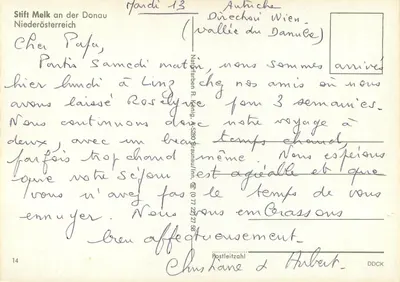 Stift Melk an der Donau
Niederösterreich
Mardi 13
Autriche
Direction Wien
(Vallée du Danube)
Cher Papa,
Partis samedi matin, nous sommes arrivés
hier lundi à Linz chez nos amis où nous
avons laissé Roselyne pour 3 semaines.
Nous continuons donc notre voyage à
deux, avec un beau temps chaud,
parfois trop chaud même. Nous espérons
que votre séjour est agréable et que
vous n'avez pas le temps de vous
ennuyer. Nous vous embrassons
bien affectueusement.
Christiane & Hubert.
14
Postleitzahl
DDCK